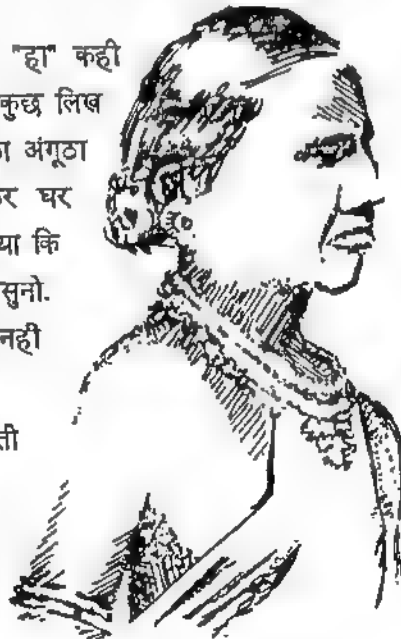 "हा" कही
कुछ लिख
अंगूठा
घर
कि
सुनो.
नही
ती